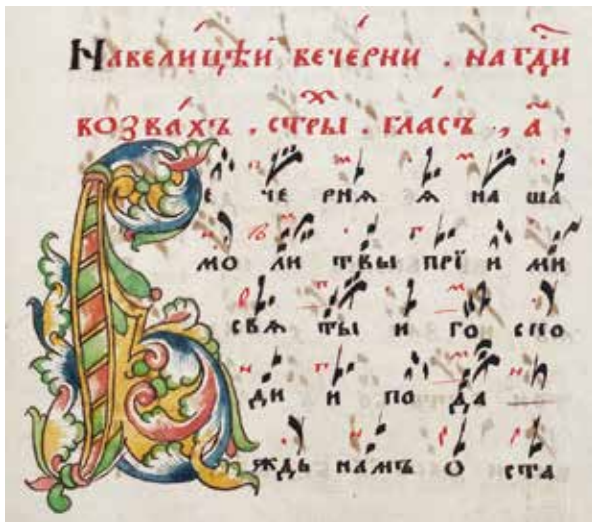 На вели́цѣй вече́рни . на гдⷭ҇и
возва́хъ . стⷯры . гла́съ , а҃ .
Ве че рнѧ ѧ на ша
мо ли твы прї и ми
свѧ ты и го спо
ди и по да
ждь намъ о ста